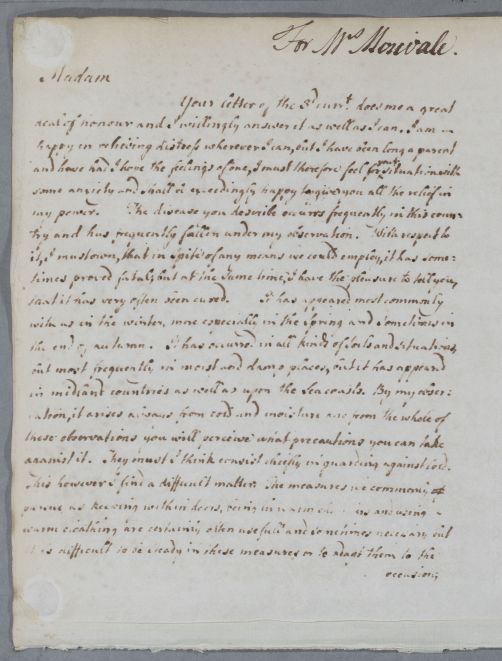 For Mrs Merivale.
Madam
Your letter of the 3d curt. does me a great
deal of honour and I willingly answer it as well as I can. I am
happy in relieving distress wherever I can, but I have been long a parent
and have had I hope the feelings of one, I must therefore feel for your situation with
some anxiety and shall be exceedingly happy to give you all the relief in
my power. The disease you describe occurs frequently in this coun-
try and has frequently fallen under my observation. With respect to
it, I must own, that in spite of any means we could employ, it has some-
times proved fatal; but at the same time, I have the pleasure to tell you,
that it has very often been cured. It has appeared most commonly
with us in the winter, more especially in the Spring and sometimes in
the end of autumn. It has occurred in all kinds of soils and situations,
but most frequently in moist and damp places, but it has appeard
in midland countries as well as upon the Sea coasts. By my obser-
vation, it arises always from cold and moisture and from the whole of
these observations you will perceive what precautions you can take
against it. They must I think consist chiefly in guarding against cold.
This however I find a difficult matter. The measures we commonly
pursue as keeping within doors, being in warm in using
warm cloathing are certainly often usefull and sometimes necessary but
it is difficult to be steady in these measures or to adapt them to the
occasion;